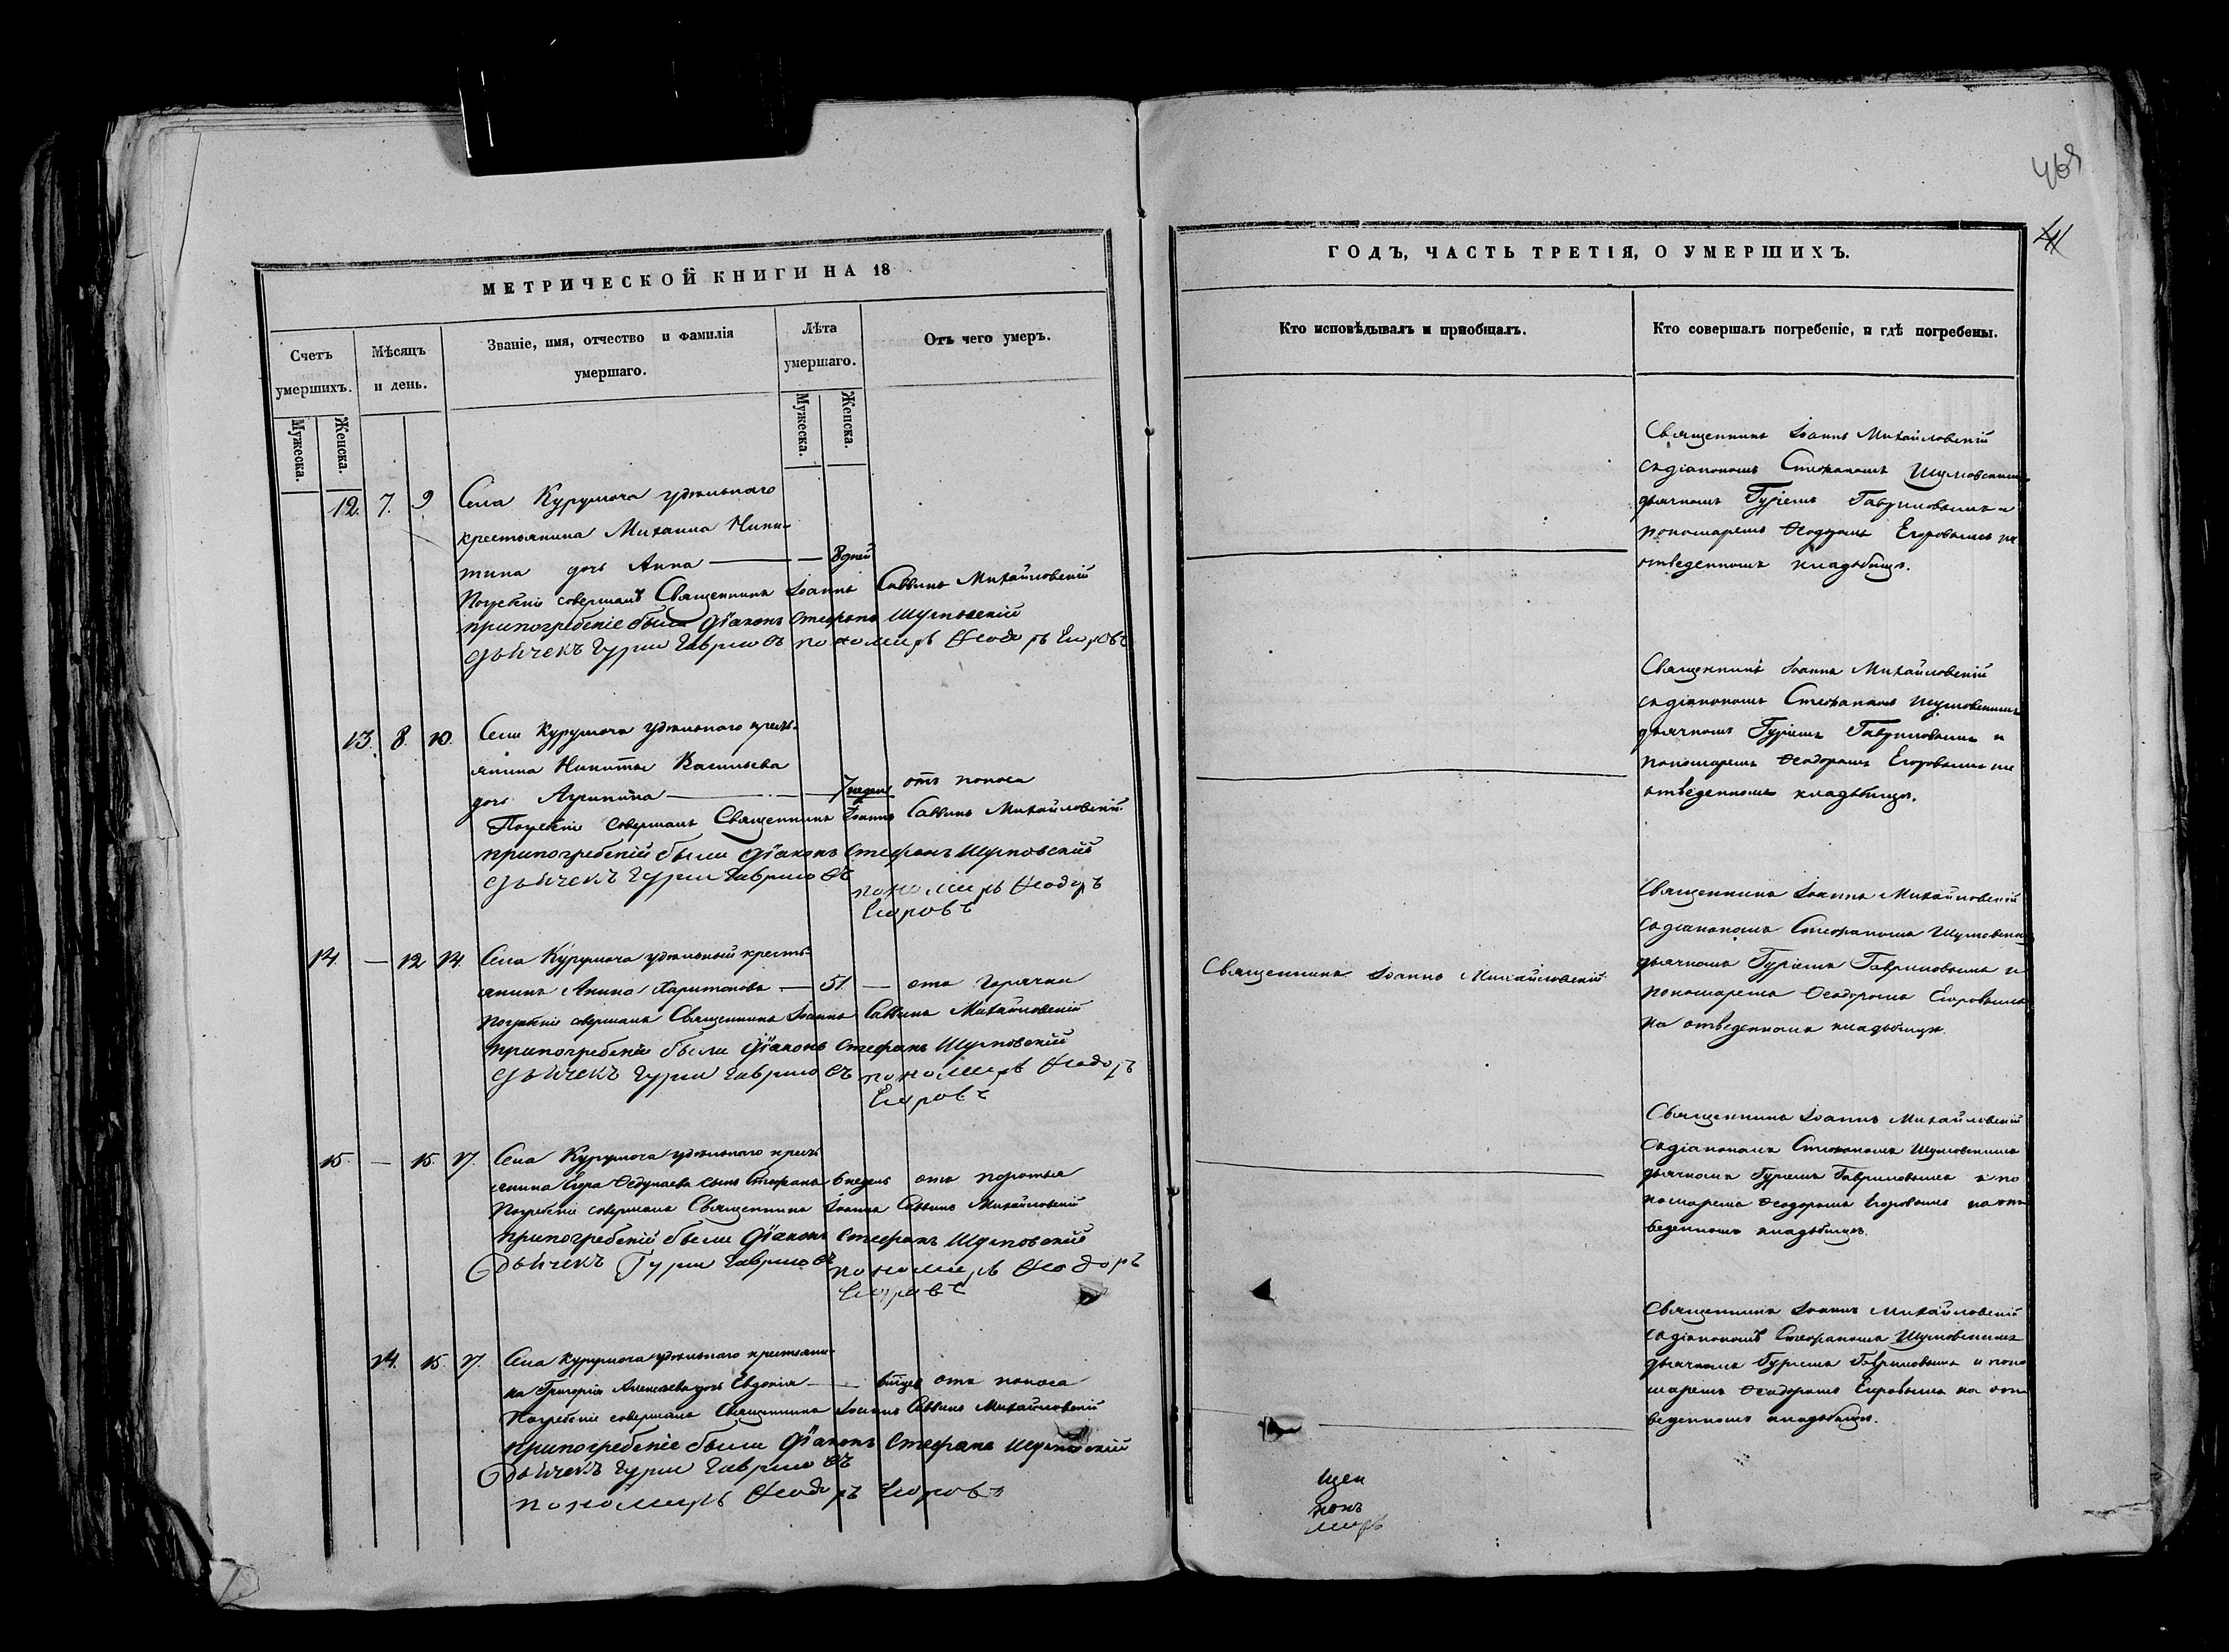 МЕТРИЧЕСКОЙ КНИГИ НА 18
Счетъ умершихъ.
Мѣсяцъ и день.
Званіе, имя, отчество и фамилія умершаго.
Лѣта умершаго.
Отъ чего умеръ.
Мужеска.
Женска.
Мужеска.
Женска.
12. 7. 9 Села Курумоча удѣльнаго
крестьянина Михаила Ники-
тина дочь Анна — 8 дней
Погребеніе совершалъ Священникъ Іоаннъ Саввинъ Михайловскій
припогребеніе были діаконъ Стефанъ Шумовскій
Дьячекъ Гурiи Гавриловъ пономарь Ѳеодоръ Егоровъ
13. 8. 10. Села Курумоча удѣльнаго кресть-
янина Никиты Васильева
дочь — 7 недѣль отъ поноса
Погребеніе совершалъ Священникъ Іоаннъ Саввинъ Михайловскій
припогребеніи были діаконъ Стефанъ Шумовскій
Дьячекъ Гурiи Гавриловъ
пономарь Ѳеодоръ
Егоровъ
14. — 12 14. Села Курумоча удѣльный кресть-
янинъ Харитонова — 51. — отъ горячки
Погребеніе совершалъ Священникъ Іоаннъ Саввинъ Михайловскій
припогребеніи были діаконъ Стефанъ Шумовскій
Дьячекъ Гурiи Гавриловъ пономарь Ѳеодоръ
Егоровъ
15. — 15. 17. Села Курумоча удѣльнаго кресть
янина сынъ Стефанъ 6 недѣль отъ
Погребеніе совершалъ Священникъ Іоаннъ Саввинъ Михайловскій
припогребеніи были діаконъ Стефанъ Шумовскій
Дьячекъ Гурiи Гавриловъ пономарь Ѳеодоръ
Егоровъ
14. 15. 17. Села Курумоча удѣльнаго крестьяни-
на Григорія Алексѣева дочь Евдокія — отъ поноса
Погребеніе совершалъ Священникъ Іоаннъ Саввинъ Михайловскій
припогребеніе были діаконъ Стефанъ Шумовскій
Дьячекъ Гурiи Гавриловъ
пономарь Ѳеодоръ Егоровъ
ГОДЪ, ЧАСТЬ ТРЕТІЯ, О УМЕРШИХЪ.
Кто исповѣдывалъ и пріобщалъ.
Кто совершалъ погребеніе, и гдѣ погребены.
Священникъ Іоаннъ Михайловскій
съ діакономъ Стефаномъ Шумовскимъ
дьячкомъ Гуріемъ Гавриловымъ и
пономаремъ Ѳеодоромъ Егоровымъ на
отведенномъ кладбищѣ.
Священникъ Іоаннъ Михайловскій
съ діакономъ Стефаномъ Шумовскимъ
дьячкомъ Гуріемъ Гавриловымъ и
пономаремъ Ѳеодоромъ Егоровымъ на
отведенномъ кладбищѣ.
Священникъ Іоаннъ Михайловскій
Священникъ Іоаннъ Михайловскій
съ діакономъ Стефаномъ Шумовскимъ
дьячкомъ Гуріемъ Гавриловымъ и
пономаремъ Ѳеодоромъ Егоровымъ
на отведенномъ кладбищѣ.
Священникъ Іоаннъ Михайловскій
съ діакономъ Стефаномъ Шумовскимъ
дьячкомъ Гуріемъ Гавриловымъ и по
номаремъ Ѳеодоромъ Егоровымъ на от
веденномъ кладбищѣ.
Священникъ Іоаннъ Михайловскій
съ діакономъ Стефаномъ Шумовскимъ
дьячкомъ Гуріемъ Гавриловымъ и поно
маремъ Ѳеодоромъ Егоровымъ на от
веденномъ кладбищѣ.
щен
конъ
марь